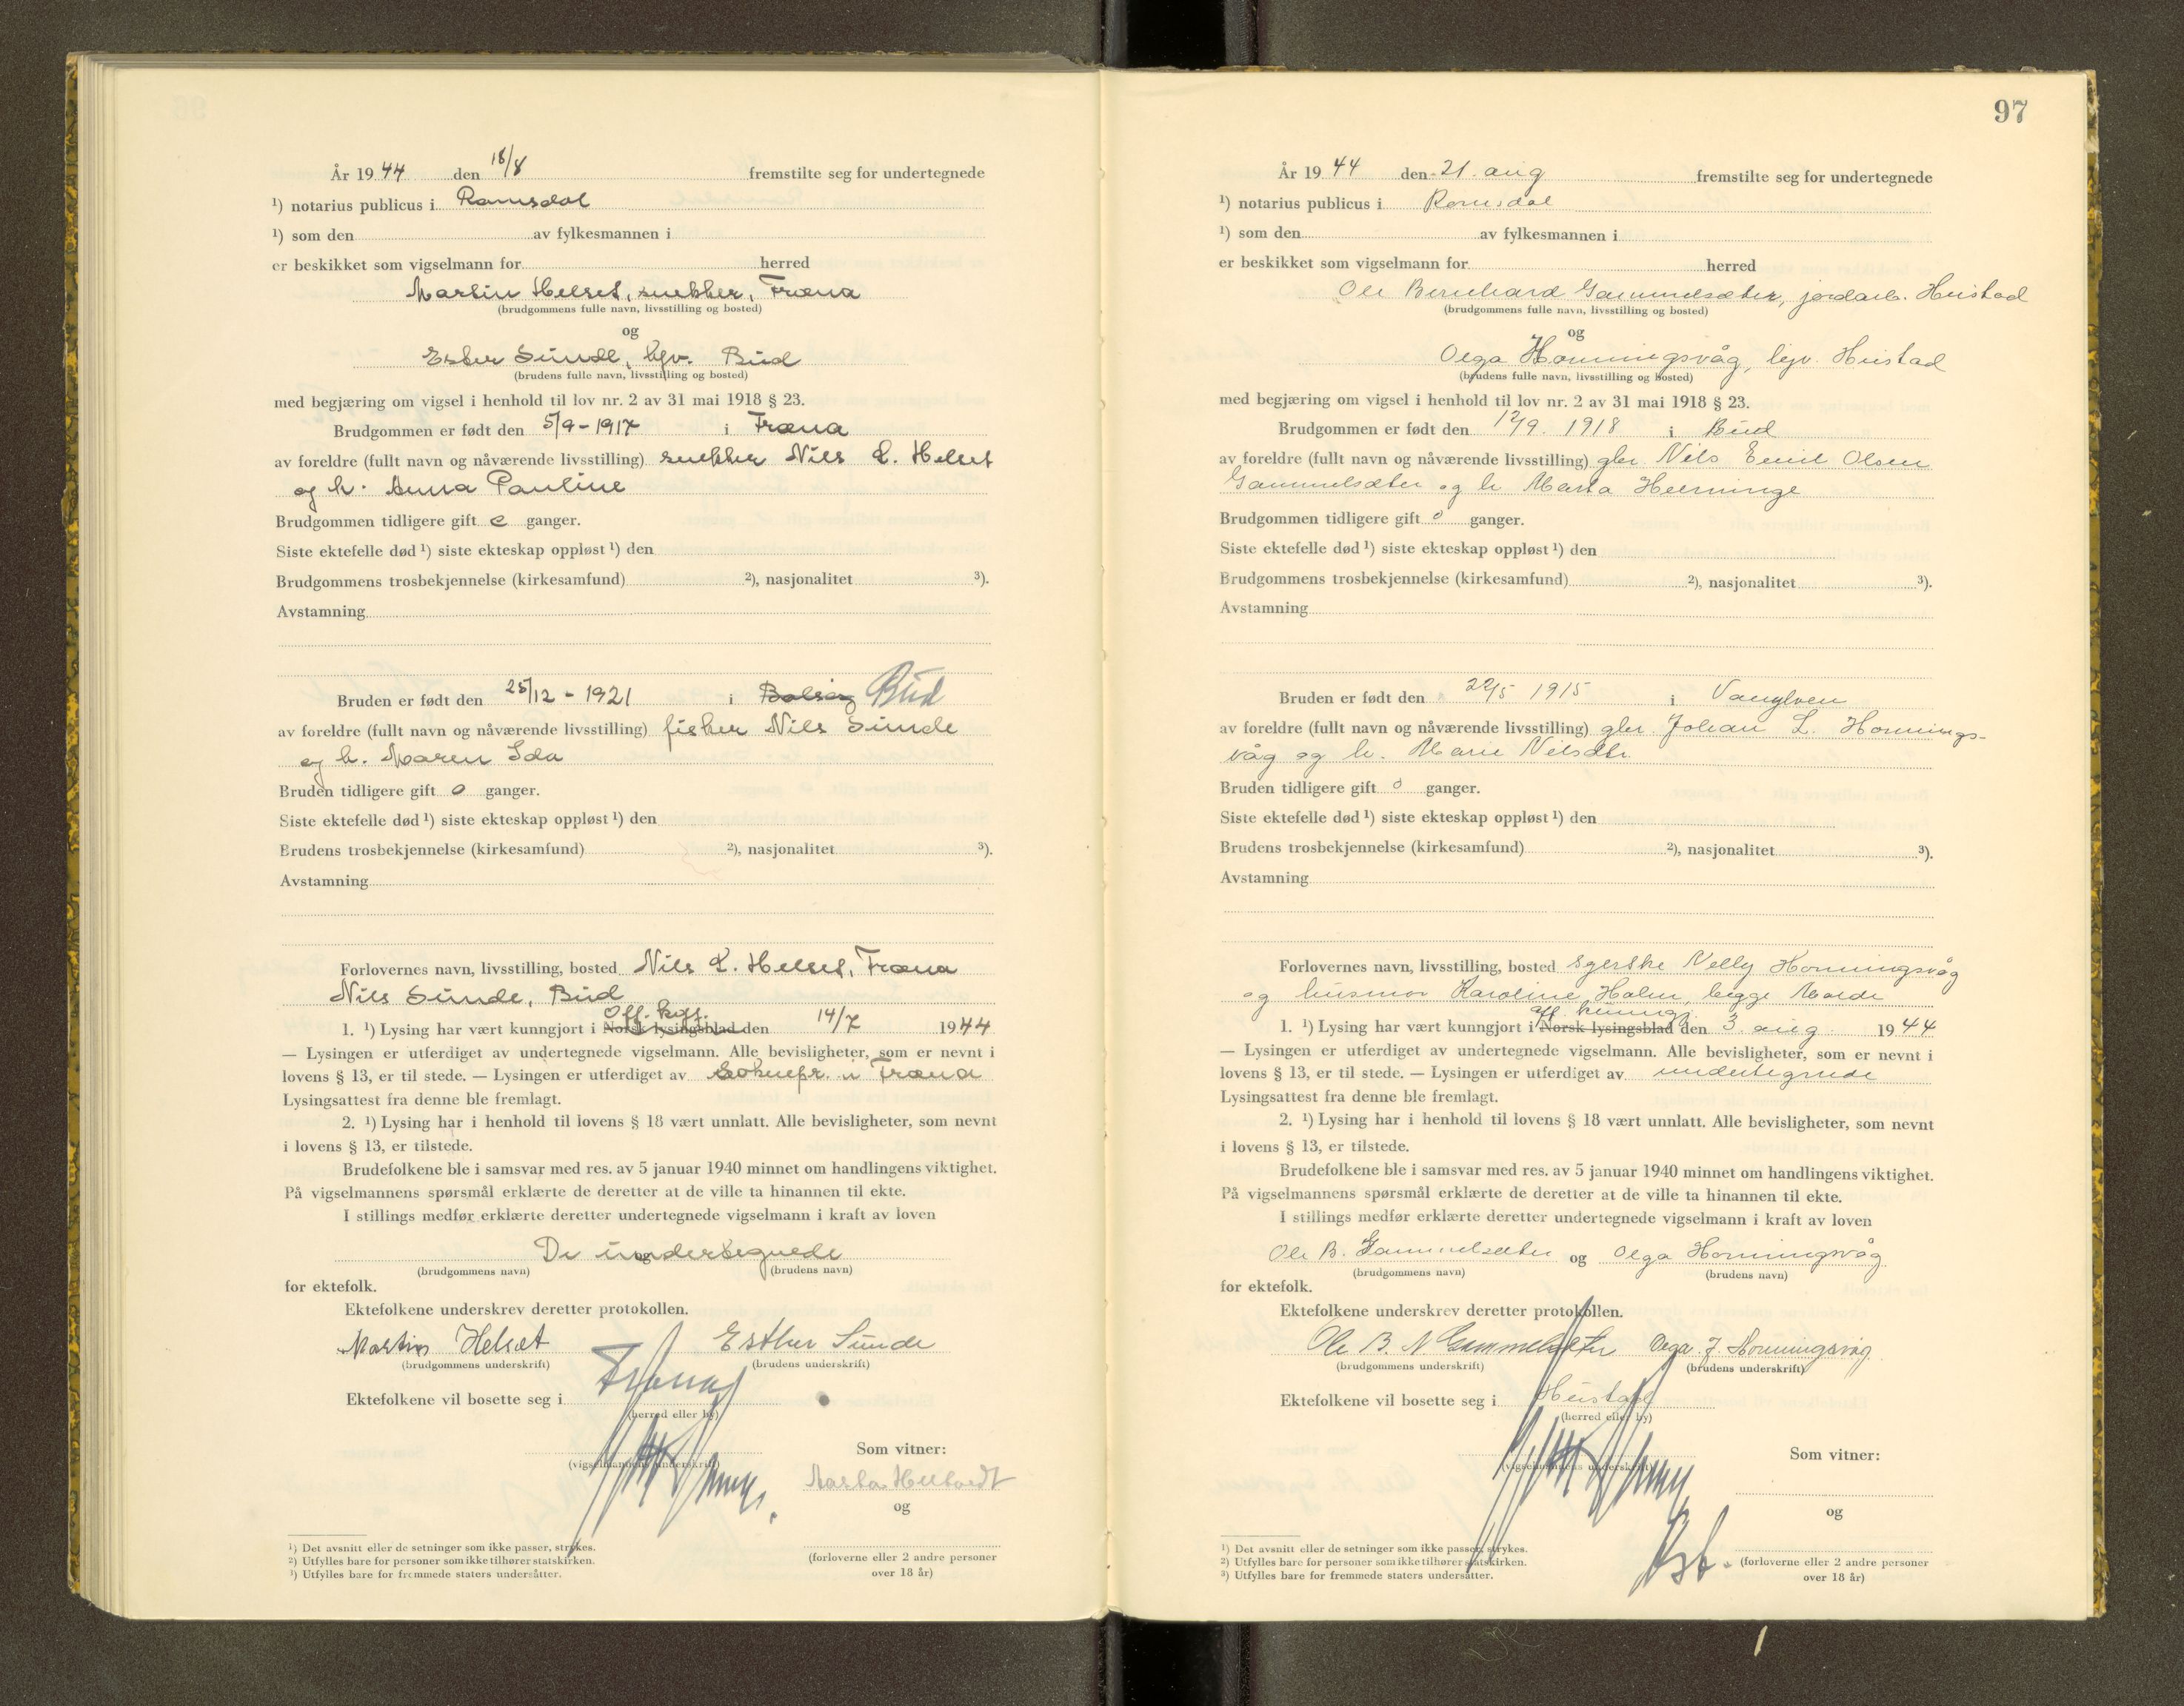 År 1944 den 18/8 fremstilte seg for undertegnede
¹) notarius publicus i Romsdal
¹) som den av fylkesmannen i
er beskikket som vigselmann for herred
Martin Helset, snekker, Fræna
(brudgommens fulle navn, livsstilling og bosted)
og
Ester Sunde, hjv. Bud
(brudens fulle navn, livsstilling og bosted)
med begjæring om vigsel i henhold til lov nr. 2 av 31 mai 1918 § 23.
Brudgommen er født den 5/9 - 1917 i Fræna
av foreldre (fullt navn og nåværende livsstilling) snekker Nils L. Helset
og h. Anna Pauline
Brudgommen tidligere gift 0 ganger.
Siste ektefelle død ¹) siste ekteskap oppløst ¹) den
Brudgommens trosbekjennelse (kirkesamfund) ²), nasjonalitet ³).
Avstamning
Bruden er født den 25/12 - 1921 i Bolsøy Bud
av foreldre (fullt navn og nåværende livsstilling) fisker Nils Sunde
og h. Maren Ida
Bruden tidligere gift 0 ganger.
Siste ektefelle død ¹) siste ekteskap oppløst ¹) den
Brudens trosbekjennelse (kirkesamfund) ²), nasjonalitet ³).
Avstamning
Forlovernes navn, livsstilling, bosted Nils L. Helset, Fræna
Nils Sunde, Bud
Off. kgj.
1. ¹) Lysing har vært kunngjort i Norsk lysingsblad den 14/7 1944
— Lysingen er utferdiget av undertegnede vigselmann. Alle bevisligheter, som er nevnt i
lovens § 13, er til stede. — Lysingen er utferdiget av Soknepr. i Fræna
Lysingsattest fra denne ble fremlagt.
2. ¹) Lysing har i henhold til lovens § 18 vært unnlatt. Alle bevisligheter, som nevnt
i lovens § 13, er tilstede.
Brudefolkene ble i samsvar med res. av 5 januar 1940 minnet om handlingens viktighet.
På vigselmannens spørsmål erklærte de deretter at de ville ta hinannen til ekte.
I stillings medfør erklærte deretter undertegnede vigselmann i kraft av loven
De undertegnede
og
(brudgommens navn) (brudens navn)
for ektefolk.
Ektefolkene underskrev deretter protokollen.
Martin Helset Esther Sunde
(brudgommens underskrift) (brudens underskrift)
Ektefolkene vil bosette seg i Fræna
(herred eller by)
Som vitner:
(vigselmannens underskrift)
og
¹) Det avsnitt eller de setninger som ikke passer, strykes.
²) Utfylles bare for personer som ikke tilhører statskirken.
³) Utfylles bare for fremmede staters undersåtter.
(forloverne eller 2 andre personer
over 18 år)
97
År 1944 den 21. aug fremstilte seg for undertegnede
¹) notarius publicus i Romsdal
¹) som den av fylkesmannen i
er beskikket som vigselmann for herred
Ole Bernhard Gammelsæter, jordarb. Hustad
(brudgommens fulle navn, livsstilling og bosted)
og
Olga Honningsvåg, hjv. Hustad
(brudens fulle navn, livsstilling og bosted)
med begjæring om vigsel i henhold til lov nr. 2 av 31 mai 1918 § 23.
Brudgommen er født den 12/9. 1918 i Bud
av foreldre (fullt navn og nåværende livsstilling) gbr. Nils Emil Olsen
Gammelsæter og h. Marta Henninge
Brudgommen tidligere gift 0 ganger.
Siste ektefelle død ¹) siste ekteskap oppløst ¹) den
Brudgommens trosbekjennelse (kirkesamfund) ²), nasjonalitet ³).
Avstamning
Bruden er født den 22/5 1915 i Vanylven
av foreldre (fullt navn og nåværende livsstilling) gbr. Johan L. Honnings-
våg og h. Marie Nilsdtr.
Bruden tidligere gift 0 ganger.
Siste ektefelle død ¹) siste ekteskap oppløst ¹) den
Brudens trosbekjennelse (kirkesamfund) ²), nasjonalitet ³).
Avstamning
Forlovernes navn, livsstilling, bosted syerske Nelly Honningsvåg
og husmor Karoline Holm, begge Molde
off. kunngj.
1. ¹) Lysing har vært kunngjort i Norsk lysingsblad den 3. aug 1944
— Lysingen er utferdiget av undertegnede vigselmann. Alle bevisligheter, som er nevnt i
lovens § 13, er til stede. — Lysingen er utferdiget av undertegnede
Lysingsattest fra denne ble fremlagt.
2. ¹) Lysing har i henhold til lovens § 18 vært unnlatt. Alle bevisligheter, som nevnt
i lovens § 13, er tilstede.
Brudefolkene ble i samsvar med res. av 5 januar 1940 minnet om handlingens viktighet.
På vigselmannens spørsmål erklærte de deretter at de ville ta hinannen til ekte.
I stillings medfør erklærte deretter undertegnede vigselmann i kraft av loven
Ole B. Gammelsæter og Olga Honningsvåg
(brudgommens navn) (brudens navn)
for ektefolk.
Ektefolkene underskrev deretter protokollen.
Ole B. N Gammelsæter Olga J. Honningsvåg
(brudgommens underskrift) (brudens underskrift)
Ektefolkene vil bosette seg i Hustad
(herred eller by)
Som vitner:
(vigselmannens underskrift)
og
¹) Det avsnitt eller de setninger som ikke passer, strykes.
²) Utfylles bare for personer som ikke tilhører statskirken.
³) Utfylles bare for fremmede staters undersåtter.
(forloverne eller 2 andre personer
over 18 år)